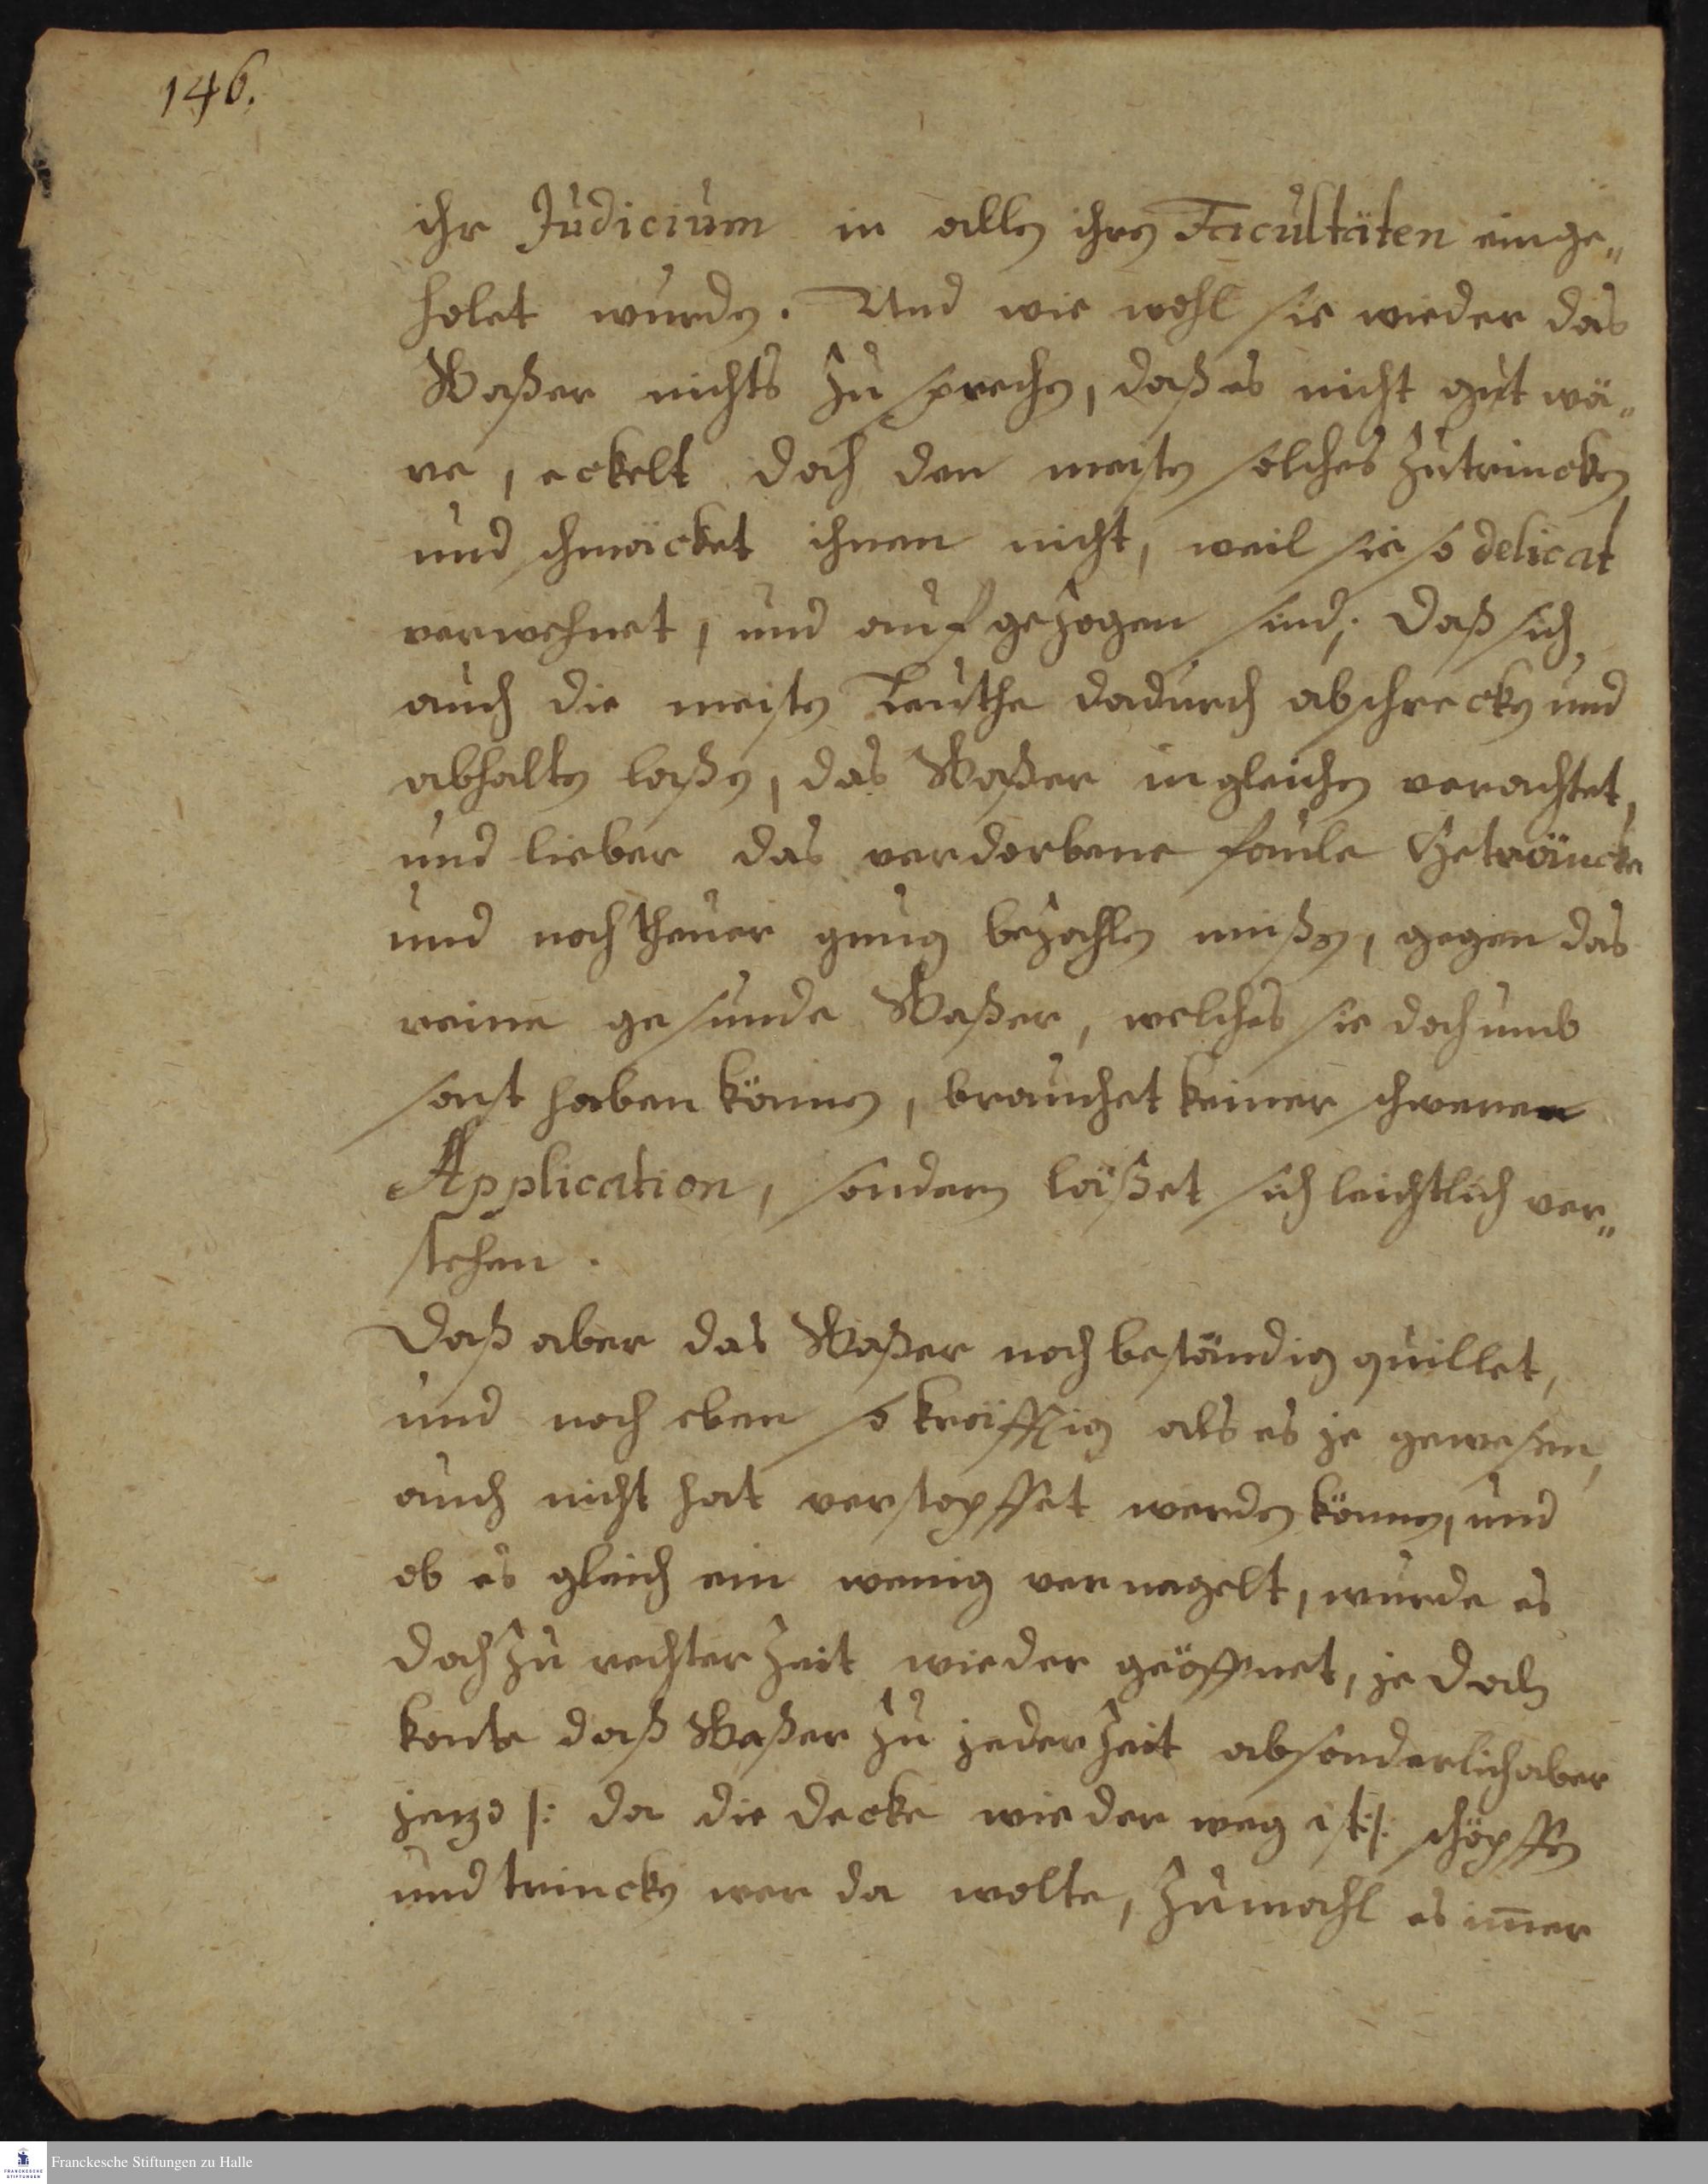 146.
ihr Judicium in allen ihren Facultäten einge„
holet wurden. Und wie wohl sie wieder das
Waßer nichts zu sprechen, daß es nicht gut wä„
re, eckelt doch den meisten solches zutrincken,
und schmäcket ihnen nicht, weil sie so delicat
verwehnet, und auf gezogen sind; Daß sich
auch die meisten Leuthe dadurch abschrecken und
abhalten laßen, das Waßer ingleichen verachtet,
und lieber das verdorbene faule Geträncke
und noch theuer genug bezahlen mußen, gegen das
reine gesunde Waßer, welches sie doch umb
sonst haben können, brauchet keiner schweren
Application, sondern läßet sich leichtlich ver„
stehen.
Daß aber das Waßer noch beständig quillet,
und noch eben so kräfftig als es je gewesen,
auch nicht hat verstopffet werden können, und
ob es gleich ein wenig vernagelt, wurde es
doch zu rechter Zeit wieder geöffnet, je doch
konte daß Waßer zu jeder Zeit absonderlich aber
jezo /: da die decke wieder weg ist :/ schöpffen
und trincken wer da wolte, zumahl es im̅er
Franckesche Stiftungen zu Halle